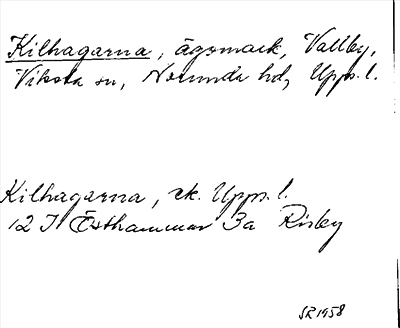 Kilhagarna, ägomark, Vallby,
Viksta sn, Norunda hd, Upps. l.
Kilhagarna, ek. Upps. l.
12 I Östhammar 3a Risby
SR 1958